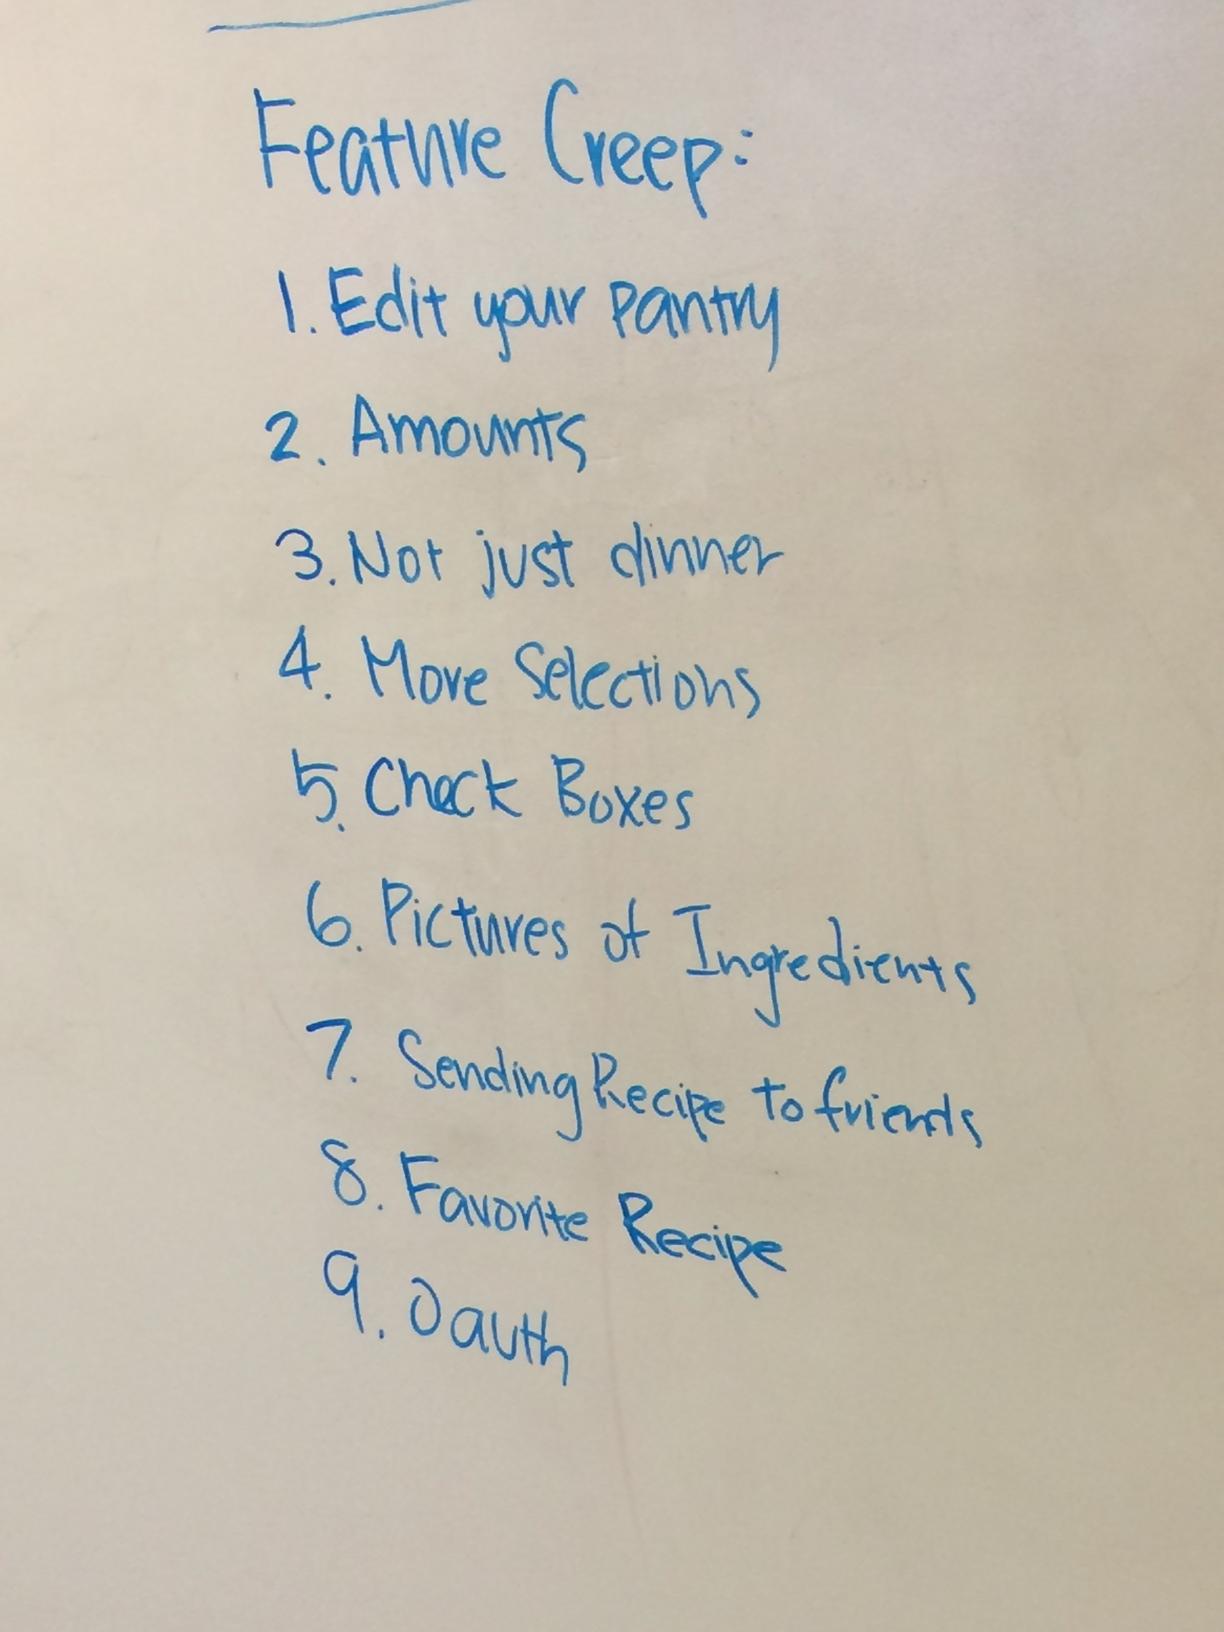 Feature Creep:
1. Edit your pantry
2. Amounts
3. Not just dinner
4. More Selections
5. Check Boxes
6. Pictures of Ingredients
7. Sending Recipe to friends
8. Favorite Recipe
9. Oauth